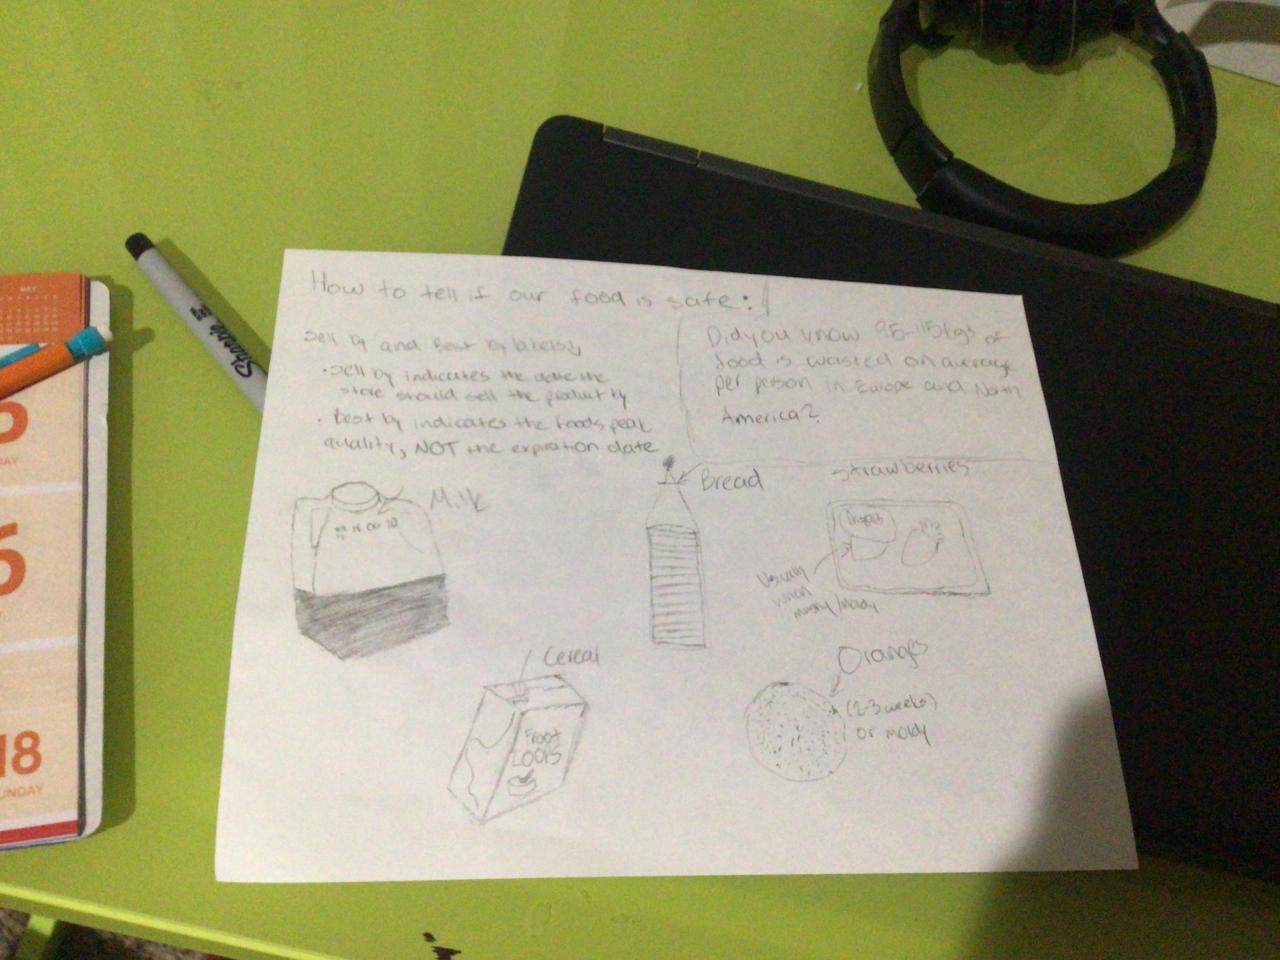 How to tell if our food is safe:
Sell by and Best by labels
• Sell by indicates the date the
store should sell the product by
• Best by indicates the foods peak
quality, NOT the expiration date
Did you know 95-115 kgs of
food is wasted on average
per person in Europe and North
America?
Milk
Bread
Strawberries
Organic
Usually
when
mushy/moldy
Cereal
Froot
LOOPS
Oranges
(2-3 weeks)
or moldy
Sharpie
MAY
6
18
SUNDAY